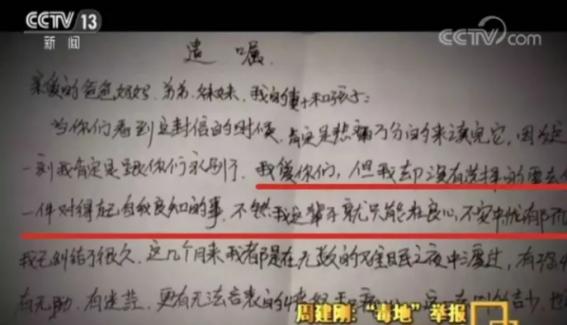 CCTV 13
新闻
CCTV.com
遗嘱
亲爱的爸爸妈妈、弟弟、妹妹、我的妻
当你们看到这封信的时候，肯定是悲痛万分的来读完它，因为这
一刻我肯定是跟你们永别了。我爱你们，但我却没有选择的要去
一件对得起自我良知的事，不然我这辈子就只能在良心不安中忧郁而
我已纠结了很久，这几个月来我都是在无数的不眠之夜中渡过，有
有无助、有迷茫、更有无法言表的
周建刚：“毒地”举报